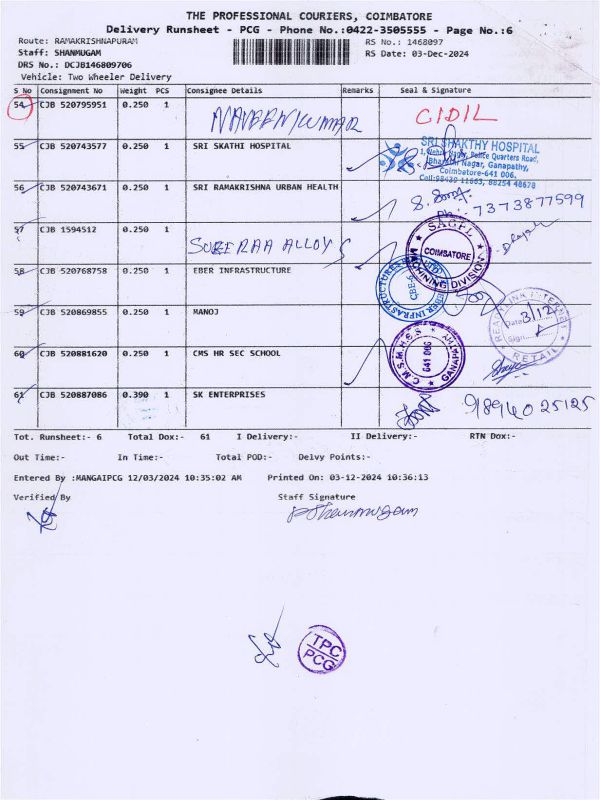 THE PROFESSIONAL COURIERS, COIMBATORE
Delivery Runsheet - PCG - Phone No.:0422-3505555 - Page No.:6
Route: RAMAKRISHNAPURAM RS No.: 1468097
Staff: SHANMUGAM RS Date: 03-Dec-2024
DRS No.: DCJB146809706
Vehicle: Two Wheeler Delivery
S No Consignment No Weight PCS Consignee Details Remarks Seal & Signature
54 CJB 520795951 0.250 1 NAVEENKUMAR
55 CJB 520743577 0.250 1 SRI SKATHI HOSPITAL
SRI SHAKTHY HOSPITAL
1, Nehru Nagar, Police Quarters Road,
Bharathi Nagar, Ganapathy,
Coimbatore-641 006.
56 CJB 520743671 0.250 1 SRI RAMAKRISHNA URBAN HEALTH
Ph: 7373877599
57 CJB 1594512 0.250 1 SUBERAA ALLOYS
COIMBATORE
MACHINING DIVISION
58 CJB 520768758 0.250 1 EBER INFRASTRUCTURE
EBER INFRASTRUCTURE
59 CJB 520869855 0.250 1 MANOJ
Date 3/12
Sign
RETAIL
60 CJB 520881620 0.250 1 CMS HR SEC SCHOOL
C.M.S.M.H.S.S
641 006
GANAPATHY
61 CJB 520887086 0.390 1 SK ENTERPRISES
9894025125
Tot. Runsheet:- 6 Total Dox:- 61 I Delivery:- II Delivery:- RTN Dox:-
Out Time:- In Time:- Total POD:- Delvy Points:-
Entered By :MANGAIPCG 12/03/2024 10:35:02 AM Printed On: 03-12-2024 10:36:13
Verified By Staff Signature
P Shanmugam
TPC
PCG